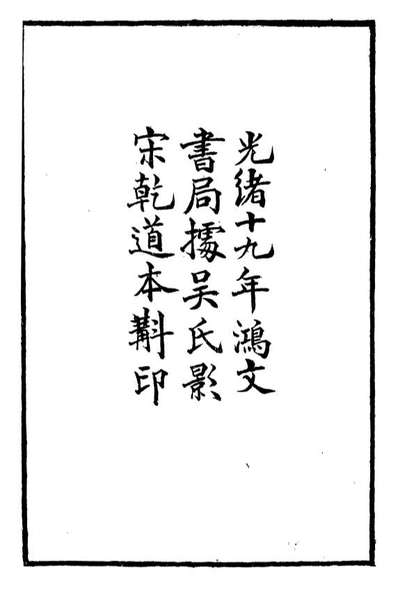 光緒十九年鴻文
書局據吳氏影
宋乾道本斠印